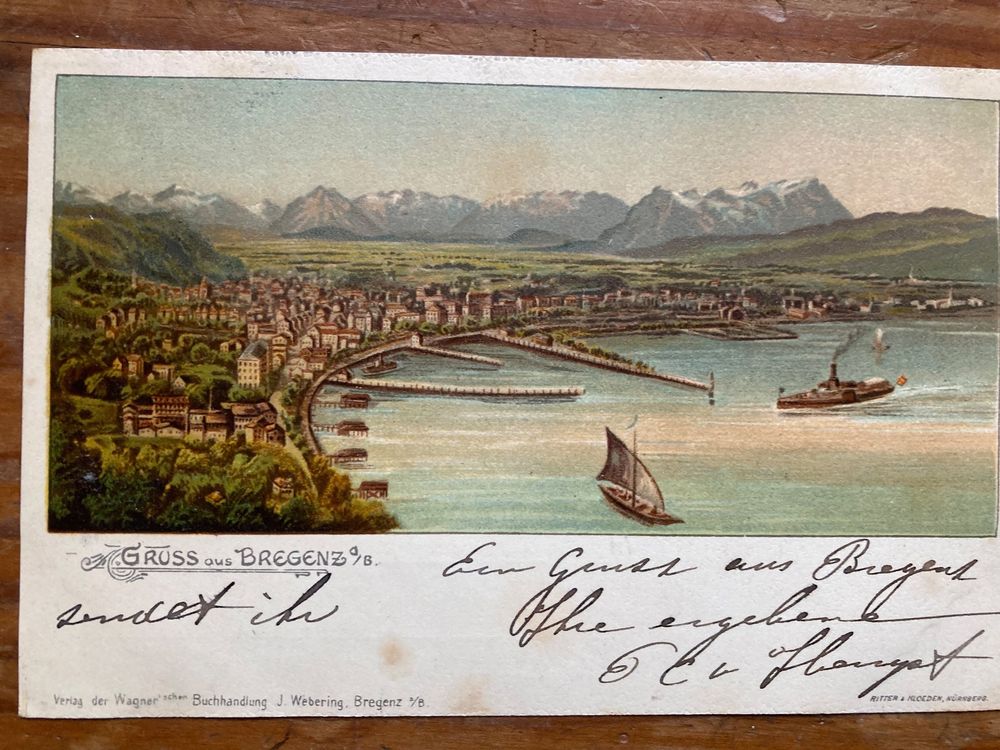 GRUSS aus BREGENZ a/B.
Ein Gruss aus Bregenz
sendet ihr
Ihre ergebene
Verlag der Wagner'schen Buchhandlung J. Webering, Bregenz a/B.
RITTER & KLOEDEN, NÜRNBERG.